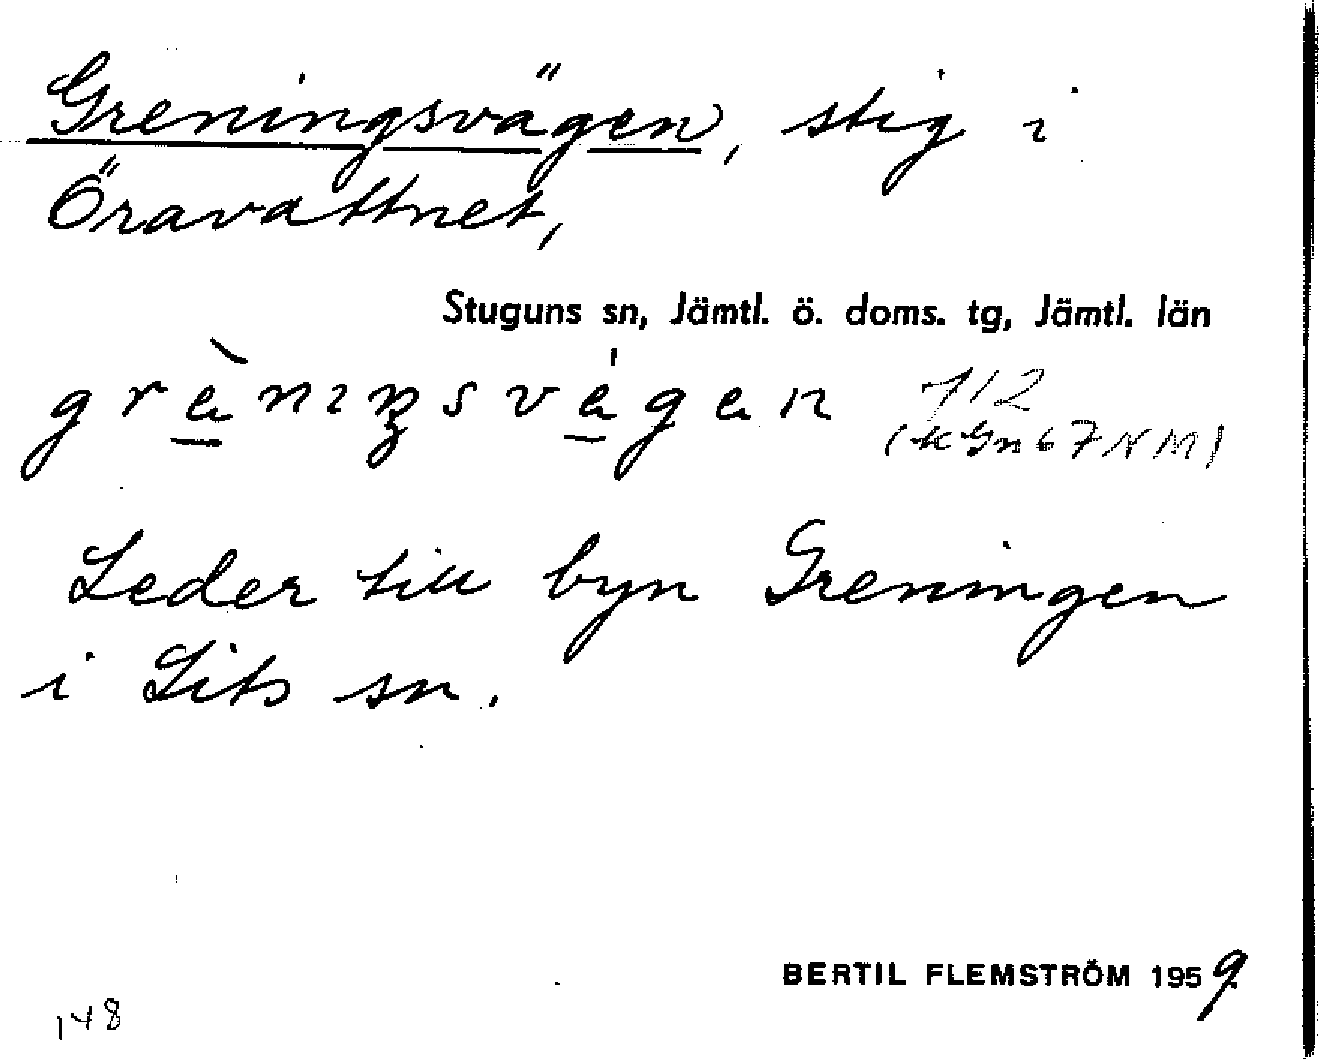 Greningsvägen, stig i
Öravattnet,
Stuguns sn, Jämtl. ö. doms. tg, Jämtl. län
Leder till byn Greningen
i Lits sn.
BERTIL FLEMSTRÖM 1959
148